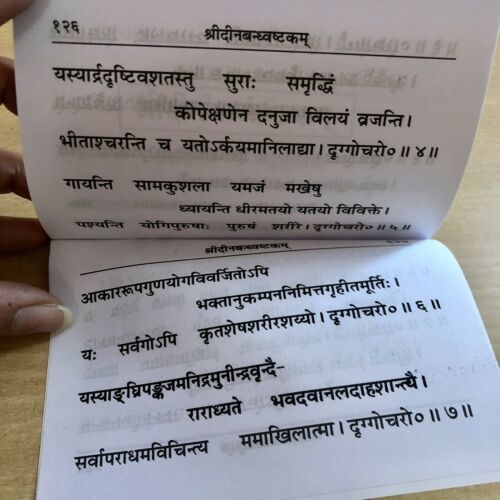 १२६
श्रीदीनबन्ध्वष्टकम्
यस्यार्द्रदृष्टिवशतस्तु सुराः समृद्धिं
कोपेक्षणेन दनुजा विलयं व्रजन्ति।
भीताश्चरन्ति च यतोऽर्कयमानिलाद्या। दृग्गोचरो०॥४॥
गायन्ति सामकुशला यमजं मखेषु
ध्यायन्ति धीरमतयो यतयो विविक्ते।
पश्यन्ति योगिपुरुषाः पुरुषं शरीरे। दृग्गोचरो०॥५॥
श्रीदीनबन्ध्वष्टकम्
आकाररूपगुणयोगविवर्जितोऽपि
भक्तानुकम्पननिमित्तगृहीतमूर्तिः।
यः सर्वगोऽपि कृतशेषशरीरशय्यो। दृग्गोचरो०॥६॥
यस्याङ्घ्रिपङ्कजमनिद्रमुनीन्द्रवृन्दै-
राराध्यते भवदवानलदाहशान्त्यै।
सर्वापराधमविचिन्त्य ममाखिलात्मा। दृग्गोचरो०॥७॥